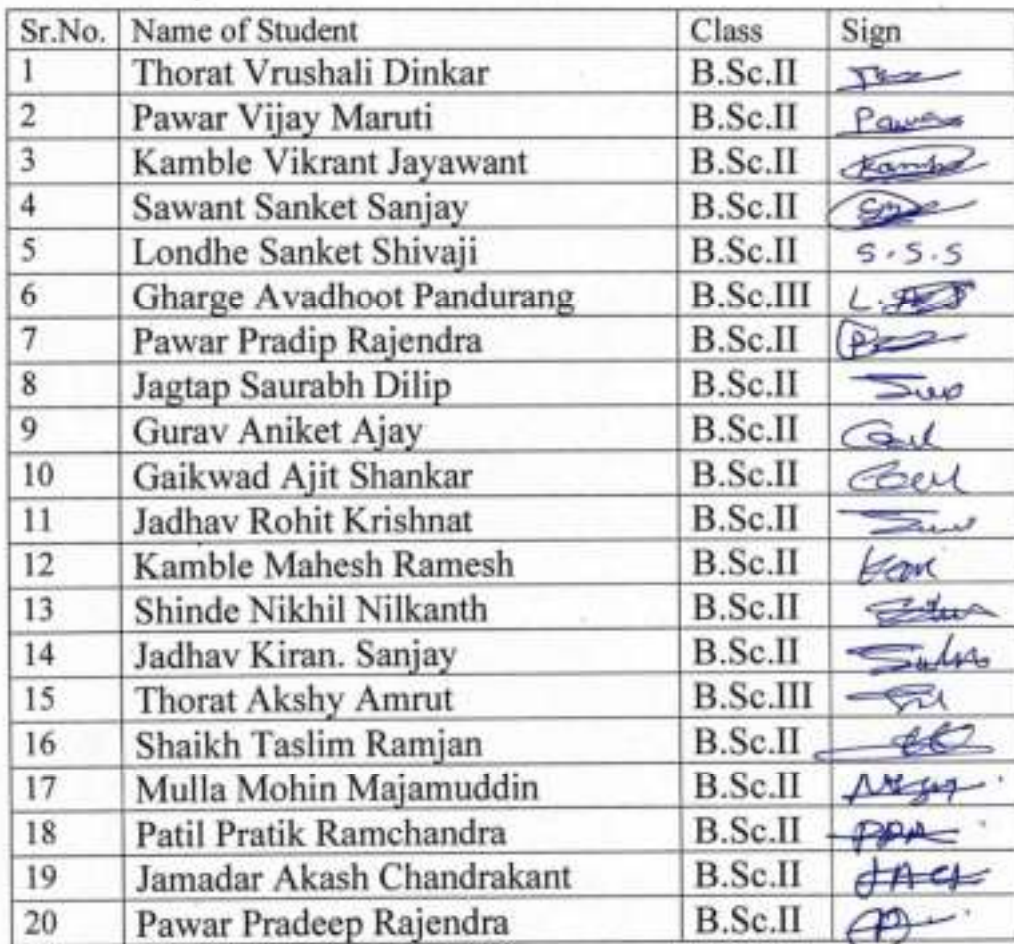 Sr.No. Name of Student Class Sign
1 Thorat Vrushali Dinkar B.Sc.II
2 Pawar Vijay Maruti B.Sc.II Pawar
3 Kamble Vikrant Jayawant B.Sc.II Kamble
4 Sawant Sanket Sanjay B.Sc.II
5 Londhe Sanket Shivaji B.Sc.II S.S.S
6 Gharge Avadhoot Pandurang B.Sc.III
7 Pawar Pradip Rajendra B.Sc.II
8 Jagtap Saurabh Dilip B.Sc.II
9 Gurav Aniket Ajay B.Sc.II
10 Gaikwad Ajit Shankar B.Sc.II
11 Jadhav Rohit Krishnat B.Sc.II
12 Kamble Mahesh Ramesh B.Sc.II
13 Shinde Nikhil Nilkanth B.Sc.II
14 Jadhav Kiran. Sanjay B.Sc.II
15 Thorat Akshy Amrut B.Sc.III
16 Shaikh Taslim Ramjan B.Sc.II
17 Mulla Mohin Majamuddin B.Sc.II
18 Patil Pratik Ramchandra B.Sc.II
19 Jamadar Akash Chandrakant B.Sc.II
20 Pawar Pradeep Rajendra B.Sc.II